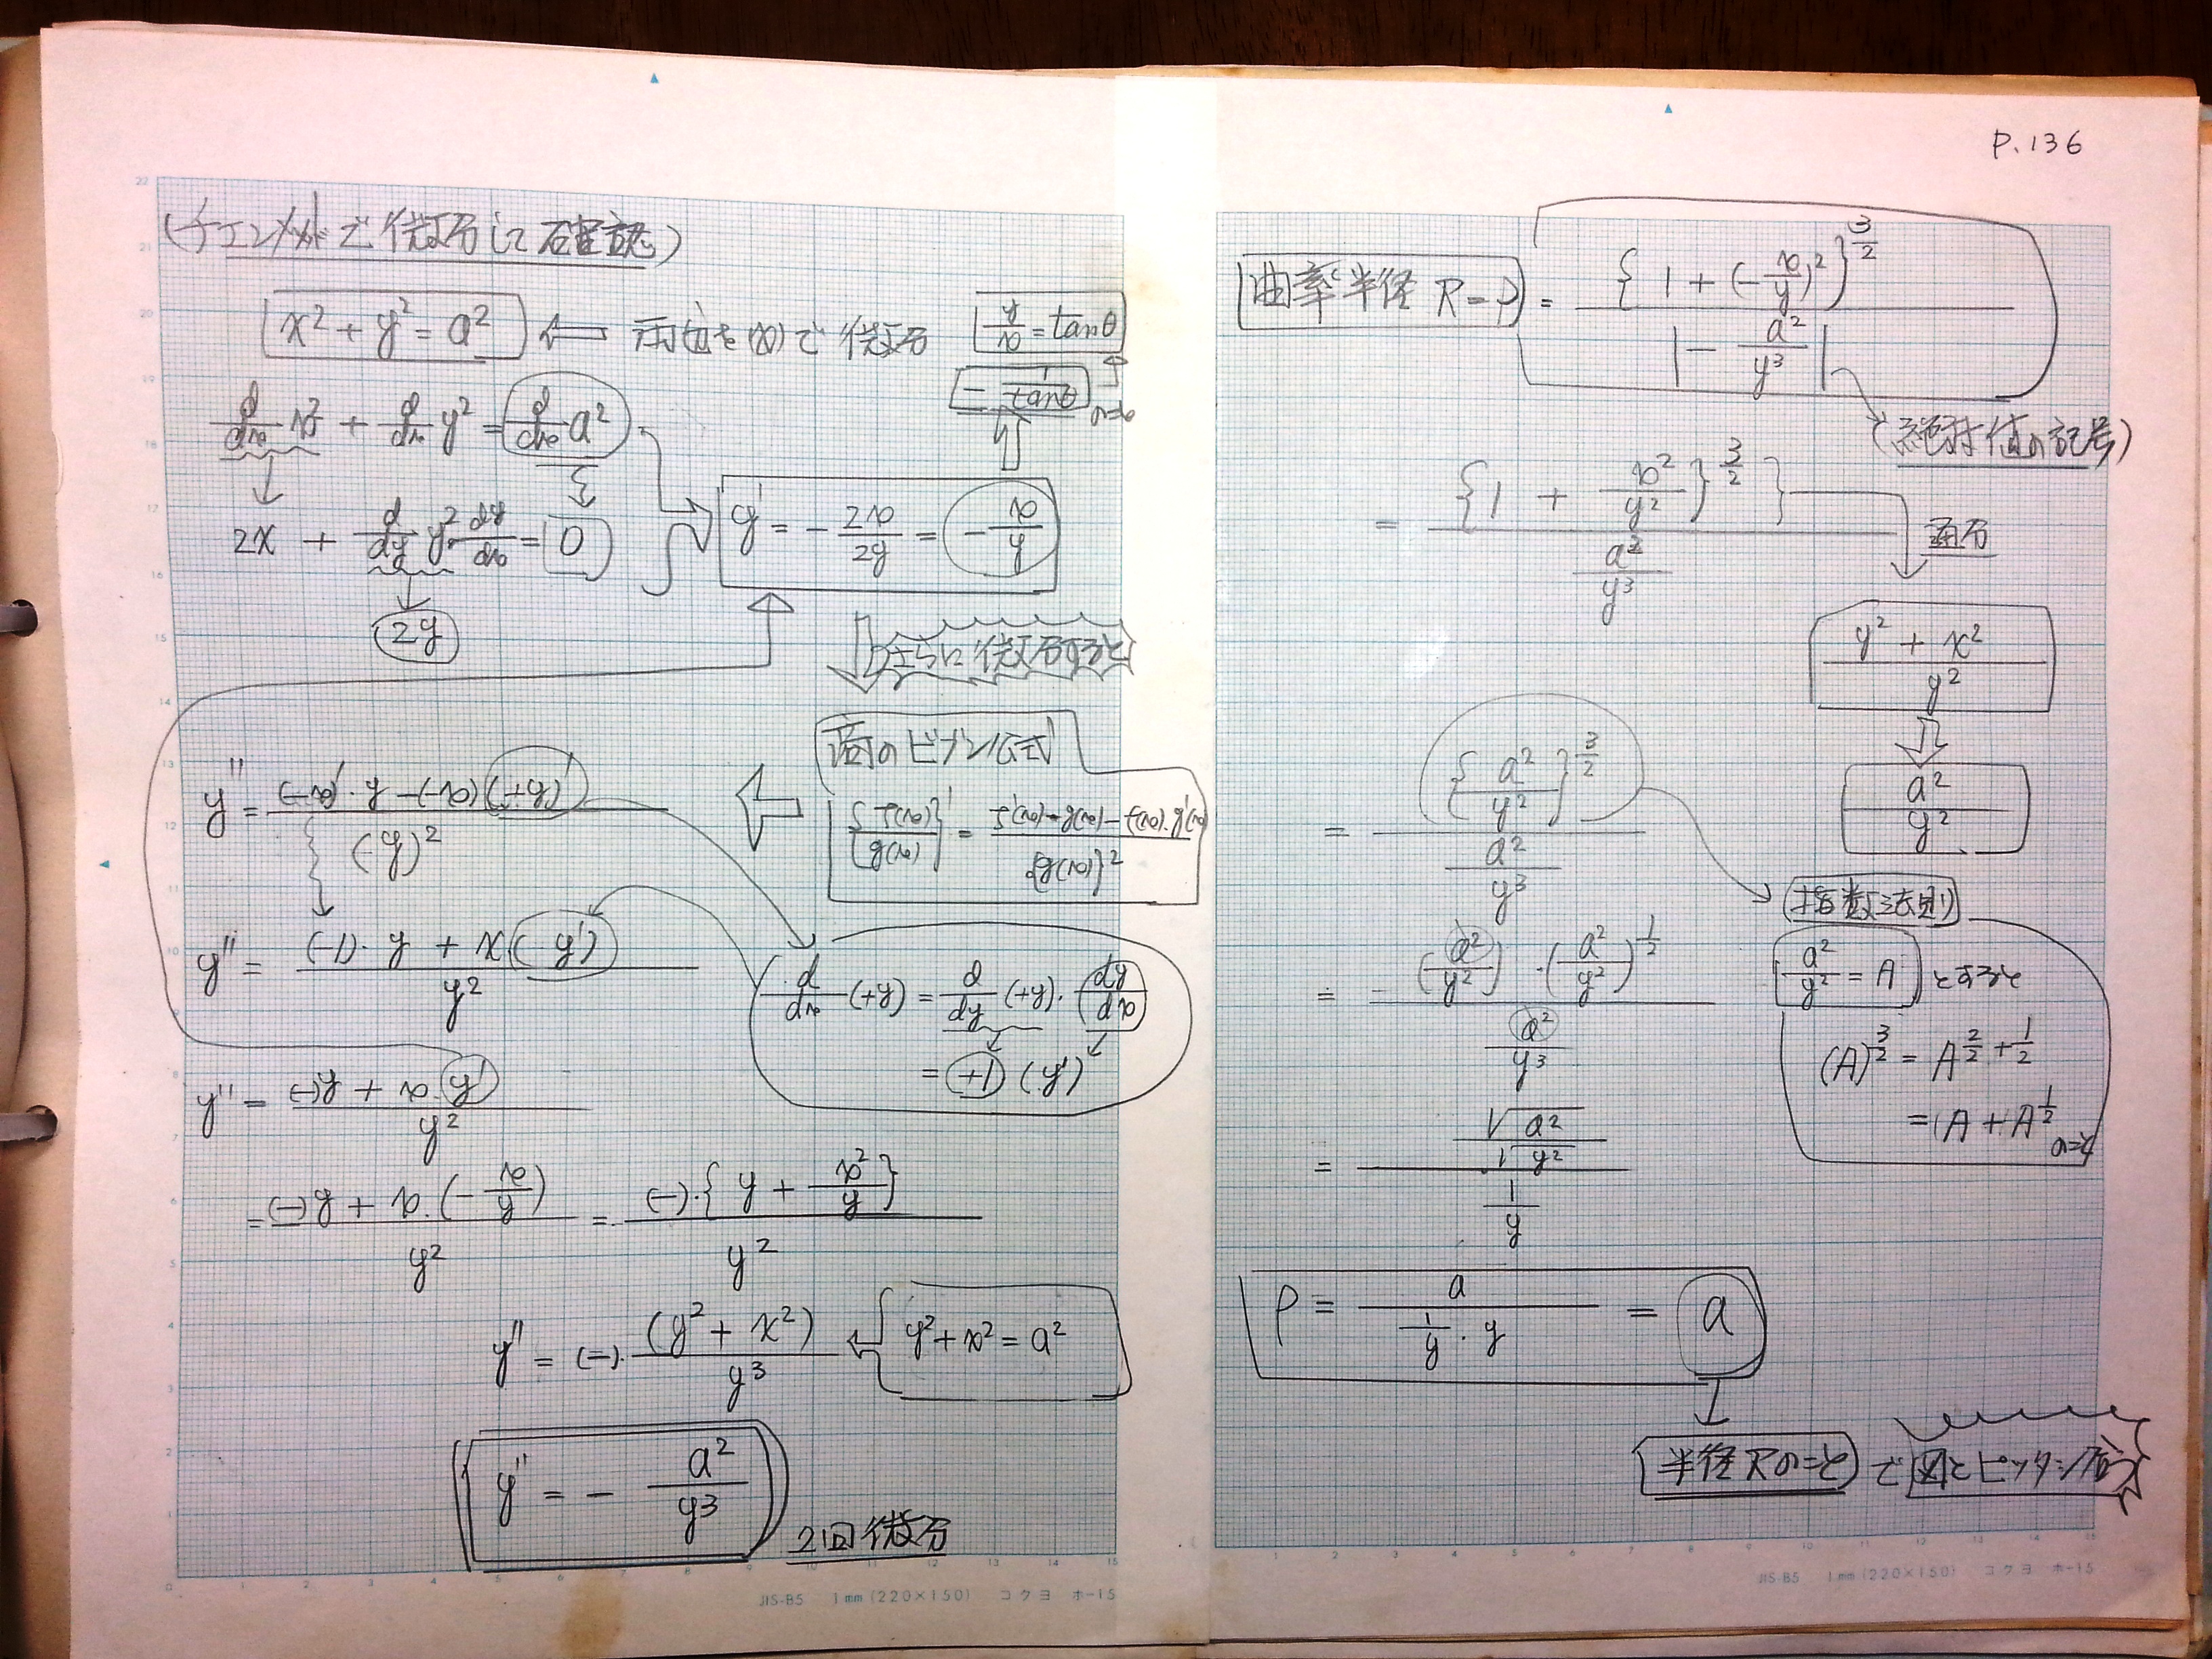 P.136
(チエン式で微分して確認)
x² + y² = a² ⇐ 両辺を(x)で微分
y/x = tanθ
- 1/tanθ
d/dx x² + d/dx y² = d/dx a²
2x + d/dy y² · dy/dx = 0
2y
y' = - 2x/2y = - x/y
さらに微分すると
商のビブン公式
{f(x)/g(x)}' = f'(x)·g(x) - f(x)·g'(x) / {g(x)}²
y'' = (-x)'·y - (-x)(+y)' / (y)²
y'' = (-1)·y + x·(y') / y²
d/dx (+y) = d/dy (+y) · dy/dx
= (+1) (y')
y'' = (-)y + x·y' / y²
= (-)y + x·(- x/y) / y² = (-)·{y + x²/y} / y²
y'' = (-)· (y² + x²) / y³
y² + x² = a²
y'' = - a²/y³
2回微分
JIS-B5 1mm (220×150) コクヨ ホ-15
曲率半径 R = ρ = {1 + (- x/y)²}^(3/2) / |- a²/y³|
(絶対値の記号)
= {1 + x²/y²}^(3/2) / (a²/y³)
通分
y² + x² / y²
a² / y²
= {a²/y²}^(3/2) / (a²/y³)
指数法則
a²/y² = A とすると
(A)^(3/2) = A^(2/2 + 1/2)
= (A + A^(1/2)
= (a²/y²) · (a²/y²)^(1/2) / (a²/y³)
= √a²/√y² / (1/y)
ρ = a / (1/y · y) = a
半径Rのこと で 図とピッタシ
JIS-B5 1mm (220×150) コクヨ ホ-15